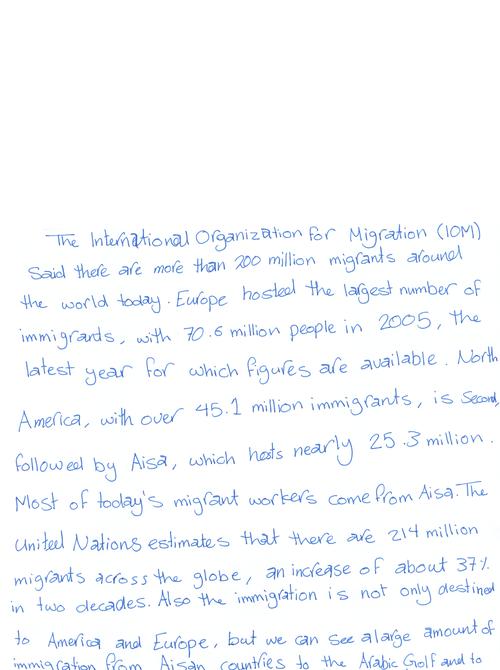 The International Organization for Migration (IOM)
Said there are more than 200 million migrants around
the world today. Europe hosted the largest number of
immigrants, with 70.6 million people in 2005, the
latest year for which figures are available. North
America, with over 45.1 million immigrants, is Second,
followed by Aisa, which hosts nearly 25.3 million.
Most of today's migrant workers come from Aisa. The
United Nations estimates that there are 214 million
migrants across the globe, an increase of about 37%
in two decades. Also the immigration is not only destined
to America and Europe, but we can see a large amount of
immigration from Aisan countries to the Arabic Golf and to